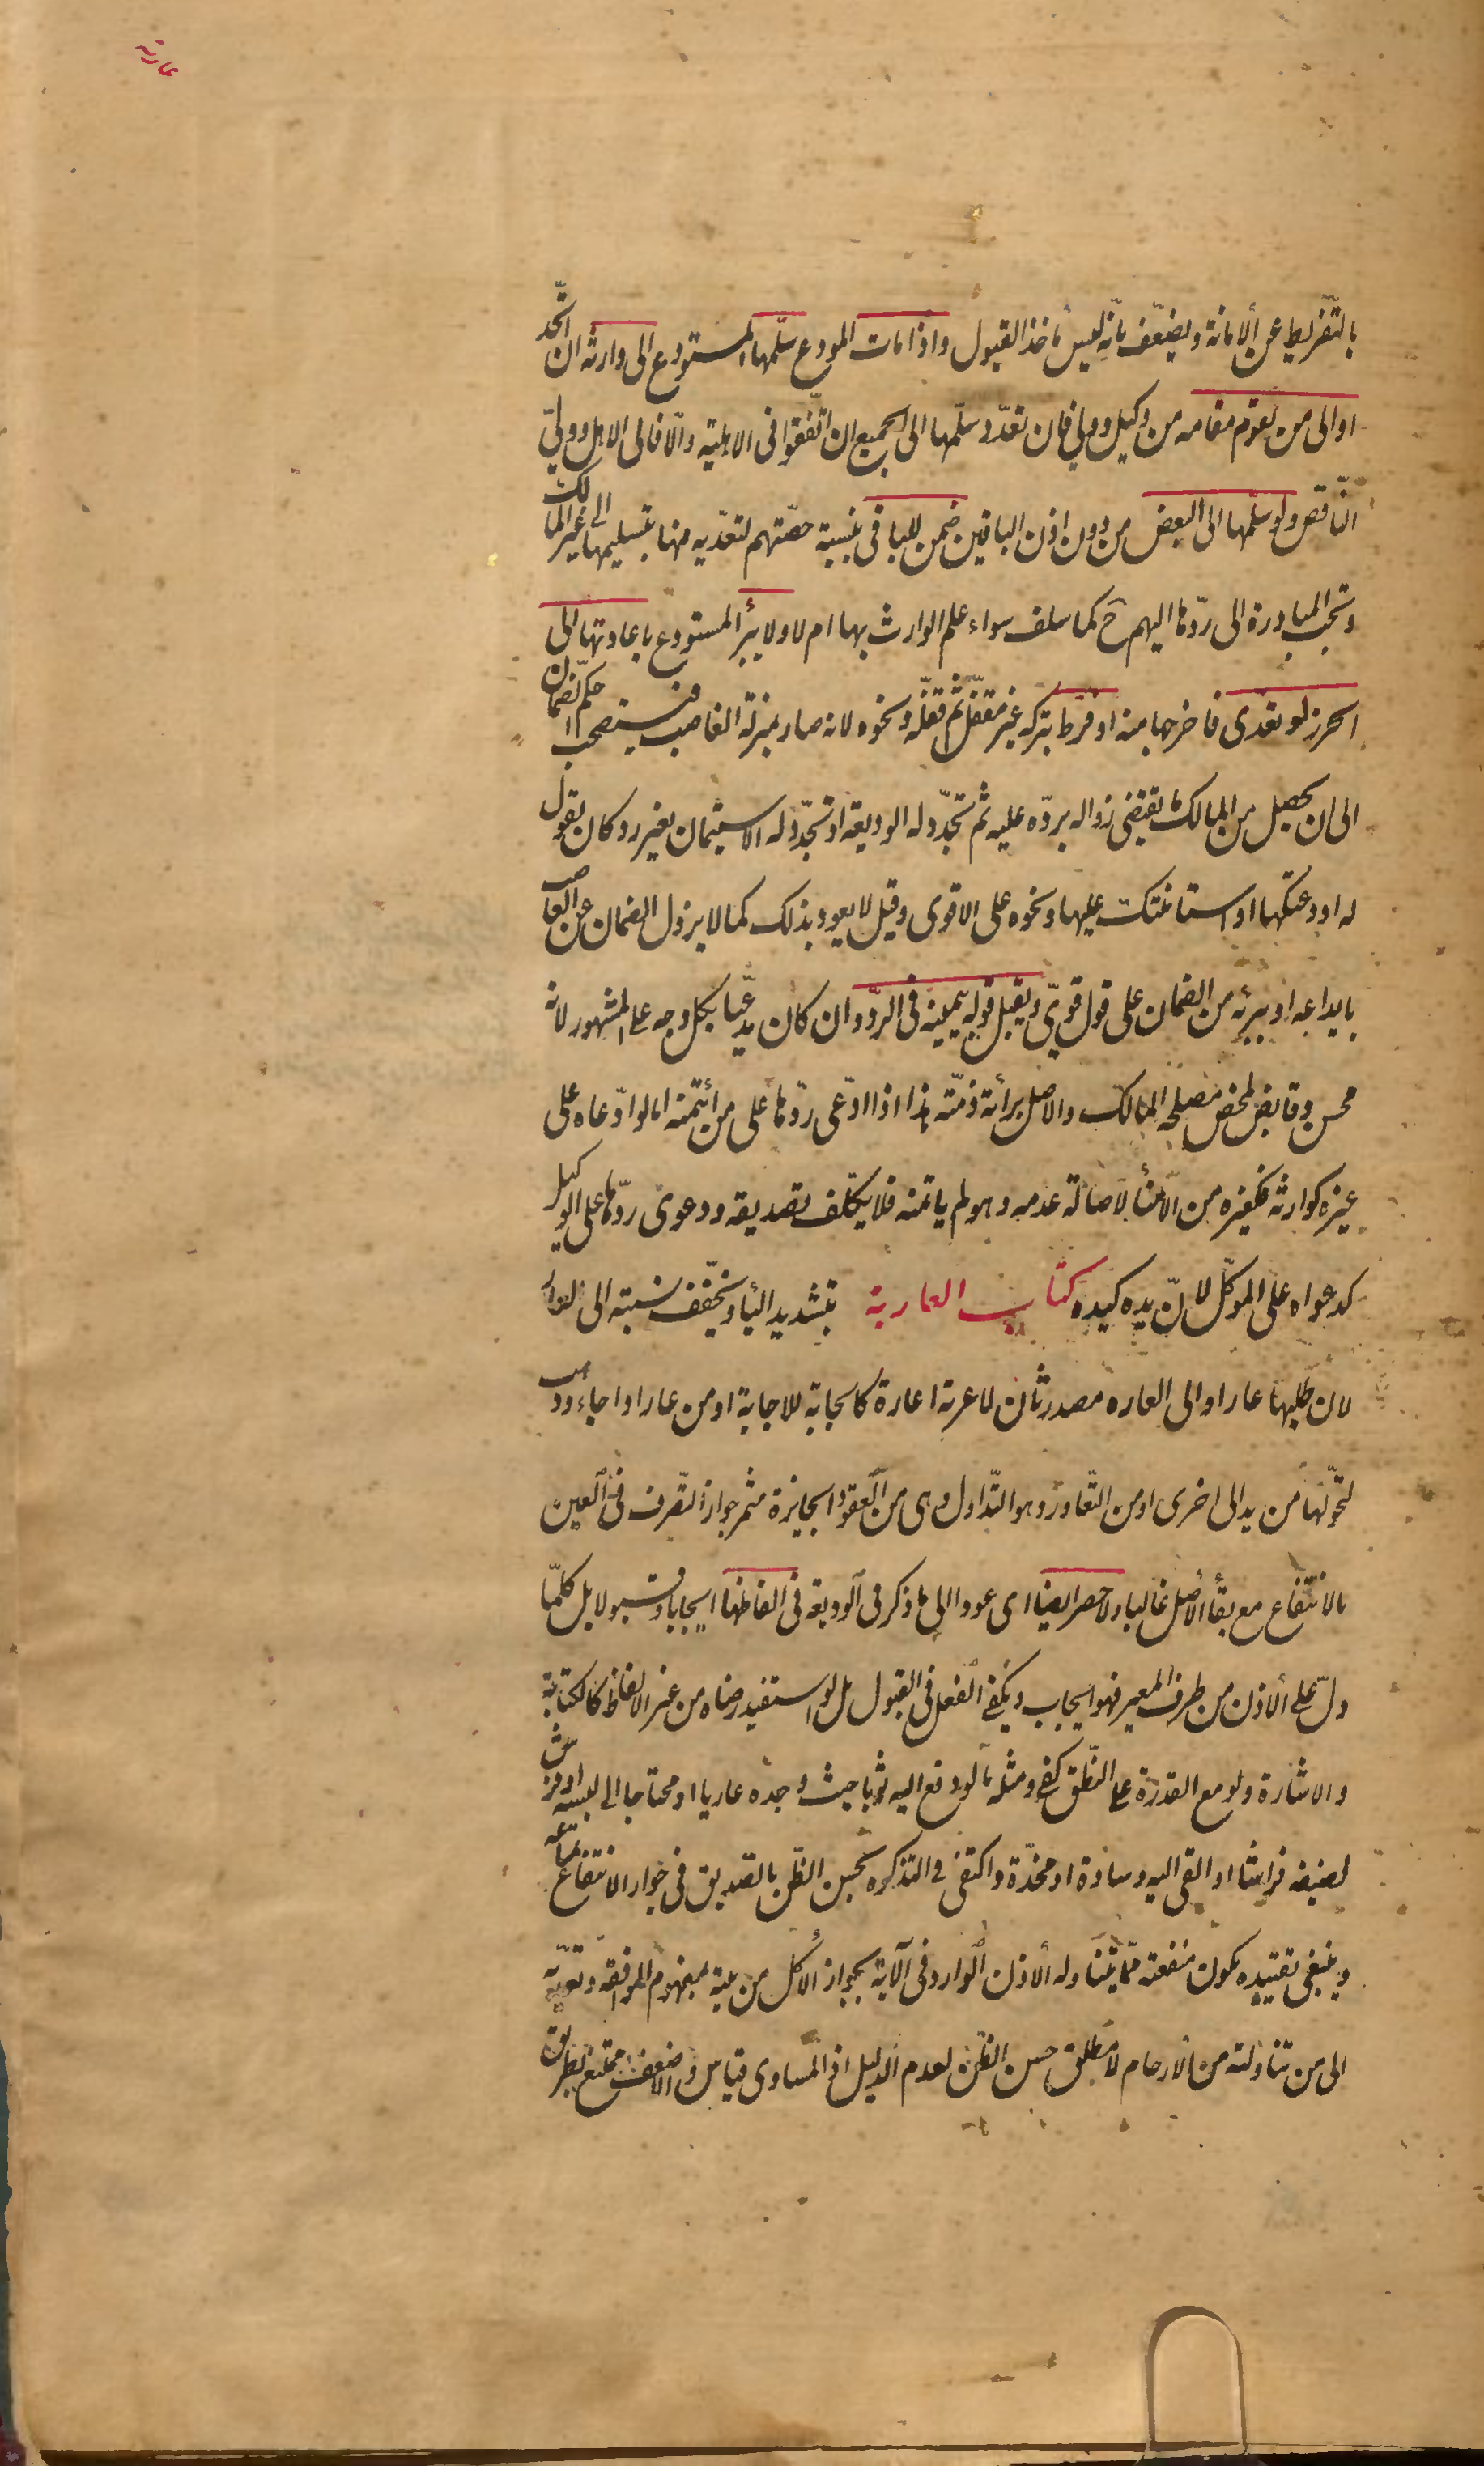 عارية
بالتّفريط عن الامانة ويضعّف بانّه ليس مأخذ القبول واذا مات المودع سلّمها المستودع الى وارثه ان اتّحد
او الى من يقوم مقامه من وكيل وولى فان تعدّد سلّمها الى الجميع ان اتّفقوا فى الاهلية والّا فالى الاهل وولىّ
النّاقص ولو سلّمها الى البعض من دون اذن الباقين ضمن للباقى بنسبة حصّتهم لتعدّيه فيها بتسليمها الى غير المالك
وتجب المبادرة الى ردّها اليهم ح كما سلف سواء علم الوارث بها ام لا ولا يبرأ المستودع باعادتها الى
الحرز لو تعدى فاخرجها منه او فرّط بتركه غير مقفل ثمّ قفله ونحوه لانه صار بمنزلة الغاصب فيستصحب حكم الضمان
الى ان يحصل من المالك ما يقتضى زواله بردّه عليه ثم تجدّد له الوديعة او تجدّد له الاستيمان بغير رد كان يقول
له اودعتكها او استامنتك عليها ونحوه على الاقوى وقيل لا يعود بذلك كما لا يزول الضمان عن الغاصب
بايداعه او يبرئه من الضمان على قول قوىّ ويقبل قوله بيمينه فى الردّ وان كان مدّعيا بكل وجه على المشهور لانه
محسن وقابض لمحض مصلحة المالك والاصل برائة ذمّته هذا اذا ادّعى ردّها على من ائتمنه اما لو ادّعاه على
غيره كوارثه فكغيره من الامنأ لاصالة عدمه وهو لم ياتمنه فلا يكلّف تصديقه ودعوى ردّها على الوكيل
كدعواه على الموكّل لانّ يده كيده كتاب العارية بتشديد اليأ وتخفّف نسبته الى العار
لان طلبها عار او الى العاره مصدر ثان لاعرته اعارة كالجابة للاجابة او من عار اذا جاء وذهب
لتحوّلها من يد الى اخرى او من التّعاور وهو التّداول وهى من العقود الجايزة مثمر جواز التّصرف فى العين
بالانتفاع مع بقأ الاصل غالبا ولا حصر ايضا اى عودا الى ما ذكر فى الوديعة فى الفاظها ايجابا وقبولا بل كلّما
دلّ على الاذن من طرف المعير فهو ايجاب ويكفى الفعل فى القبول بل لو استفيد رضاه من غير الالفاظ كالكتابة
والاشارة ولو مع القدرة على النّطق كفى ومثله ما لو دفع اليه ثوبا حيث وجده عاريا او محتاجا الى لبسه او فرش
لضيفه فراشا او القى اليه وسادة او مخدّة واكتفى فى التذكره بحسن الظّن بالصديق فى جواز الانتفاع بمتاعه
وينبغى تقييده بكون منفعته ممّا يتناوله الاذن الوارد فى الآية بجواز الأكل من بيته بمفهوم الموافقة وتعديه
الى من تناولته من الارحام لا مطلق حسن الظّن لعدم الدليل اذ المساوى قياس والاضعف ممتنع بطريق